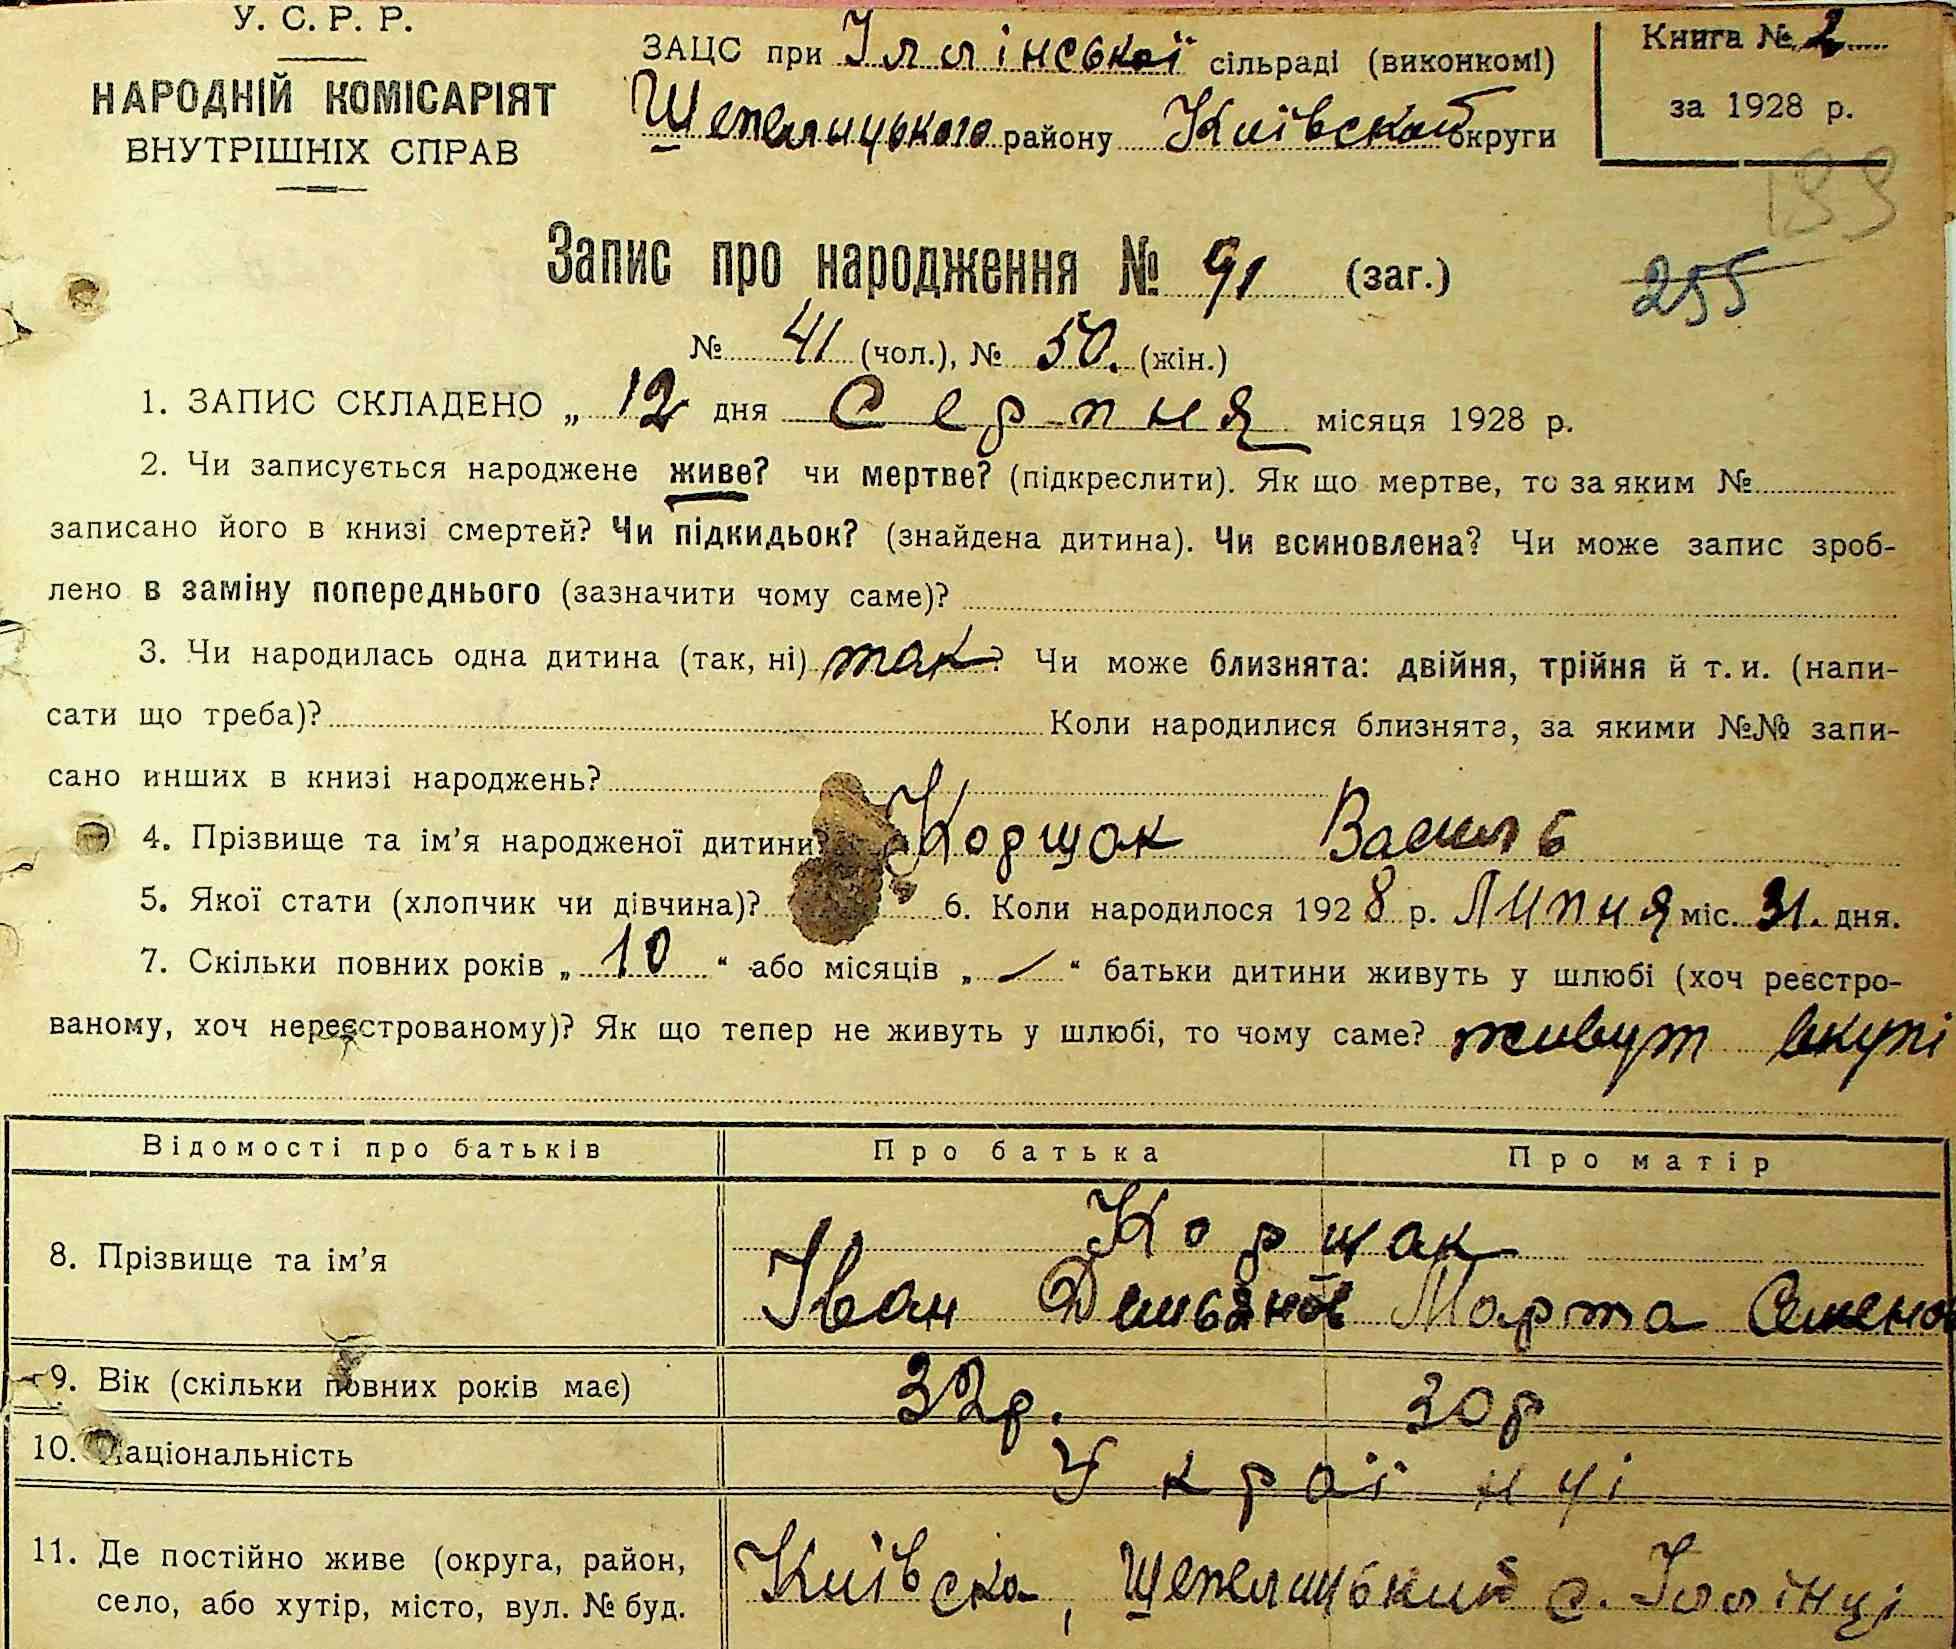 У. С. Р. Р.
НАРОДНІЙ КОМІСАРІЯТ
ВНУТРІШНІХ СПРАВ
ЗАЦС при Іллінської сільраді (виконкомі)
Шепелицького району Київской округи
Книга № 2
за 1928 р.
199
255
Запис про народження № 91 (заг.)
№ 41 (чол.), № 50. (жін.)
1. ЗАПИС СКЛАДЕНО „ 12 дня Серпня місяця 1928 р.
2. Чи записується народжене живе? чи мертве? (підкреслити). Як що мертве, то за яким №
записано його в книзі смертей? Чи підкидьок? (знайдена дитина). Чи всиновлена? Чи може запис зроб-
лено в заміну попереднього (зазначити чому саме)?
3. Чи народилась одна дитина (так, ні) так? Чи може близнята: двійня, трійня й т. и. (напи-
сати що треба)? Коли народилися близнята, за якими №№ запи-
сано инших в книзі народжень?
4. Прізвище та ім’я народженої дитини? Корщак Василь
5. Якої стати (хлопчик чи дівчина)? 6. Коли народилося 1928 р. Липня міс. 31. дня.
7. Скільки повних років „ 10 “ або місяців „ — “ батьки дитини живуть у шлюбі (хоч реєстро-
ваному, хоч нереєстрованому)? Як що тепер не живуть у шлюбі, то чому саме? живут вкупі
Відомості про батьків Про батька Про матір
8. Прізвище та ім’я Корщак
Іван Демьянов Марта Семенов
9. Вік (скільки повних років має) 32р. 30р
10. Національність Українці
11. Де постійно живе (округа, район, Київска, Шепелицький с. Іллінці
село, або хутір, місто, вул. № буд.